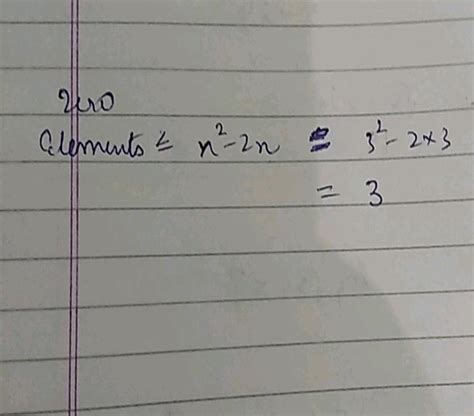 Zero
Elements ≤ n²-2n = 3²-2×3
= 3